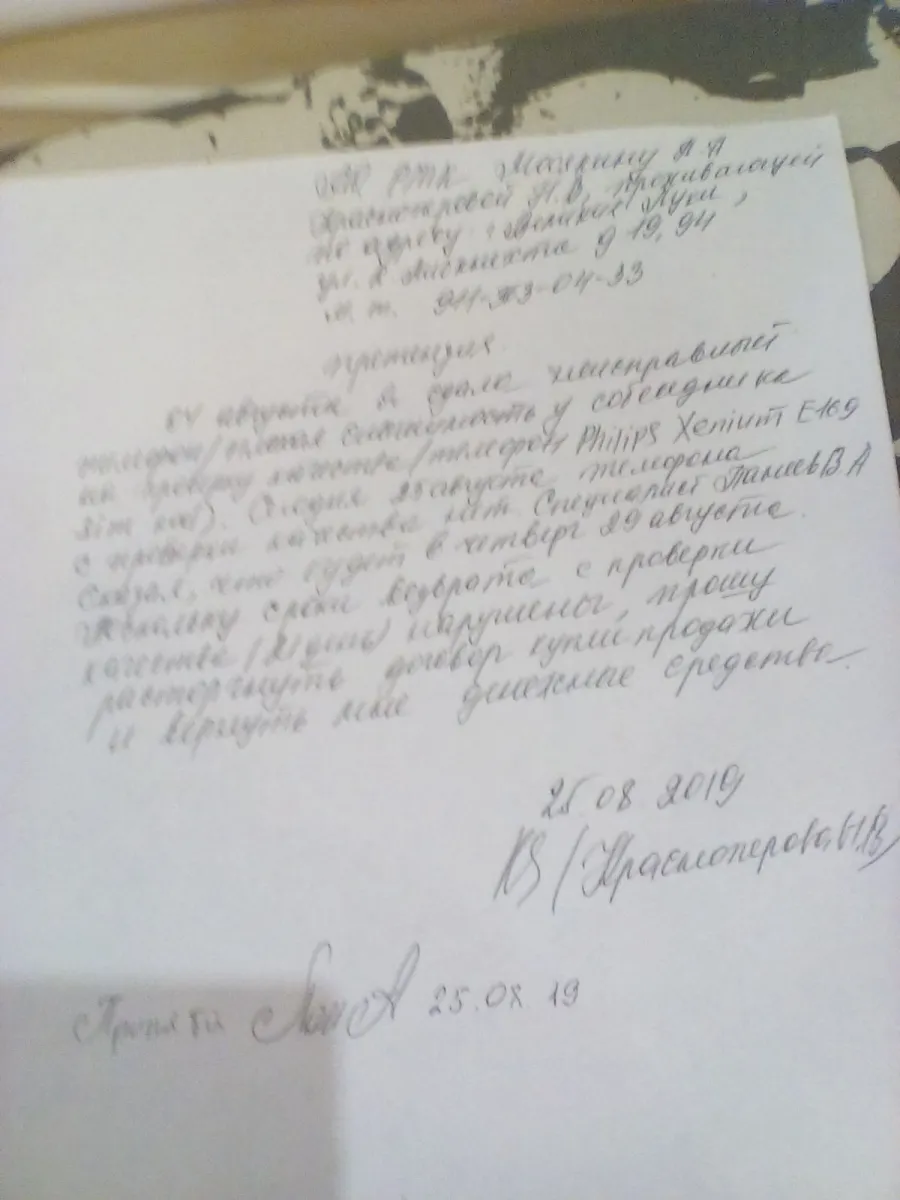 АО РТК Мосякину А.А
Красноперовой Н.В, проживающей
по адресу: г Великие Луки,
ул. К Либкнехта д 19, 94
м. т. 911-04-33
претензия
04 августа я сдала неисправный
телефон/плохая слышимость у собеседника
на проверку качества/телефон Philips Xenium E169
Sim red). Сегодня 25 августа телефона
с проверки качества нет. Специалист В А
сказал, что будет в четверг 29 августа.
Поскольку сроки возврата с проверки
качества (21 день) нарушены, прошу
расторгнуть договор купли продажи
и вернуть мне денежные средства.
25.08 2019
(Красноперова Н.В)
Принята 25.08.19